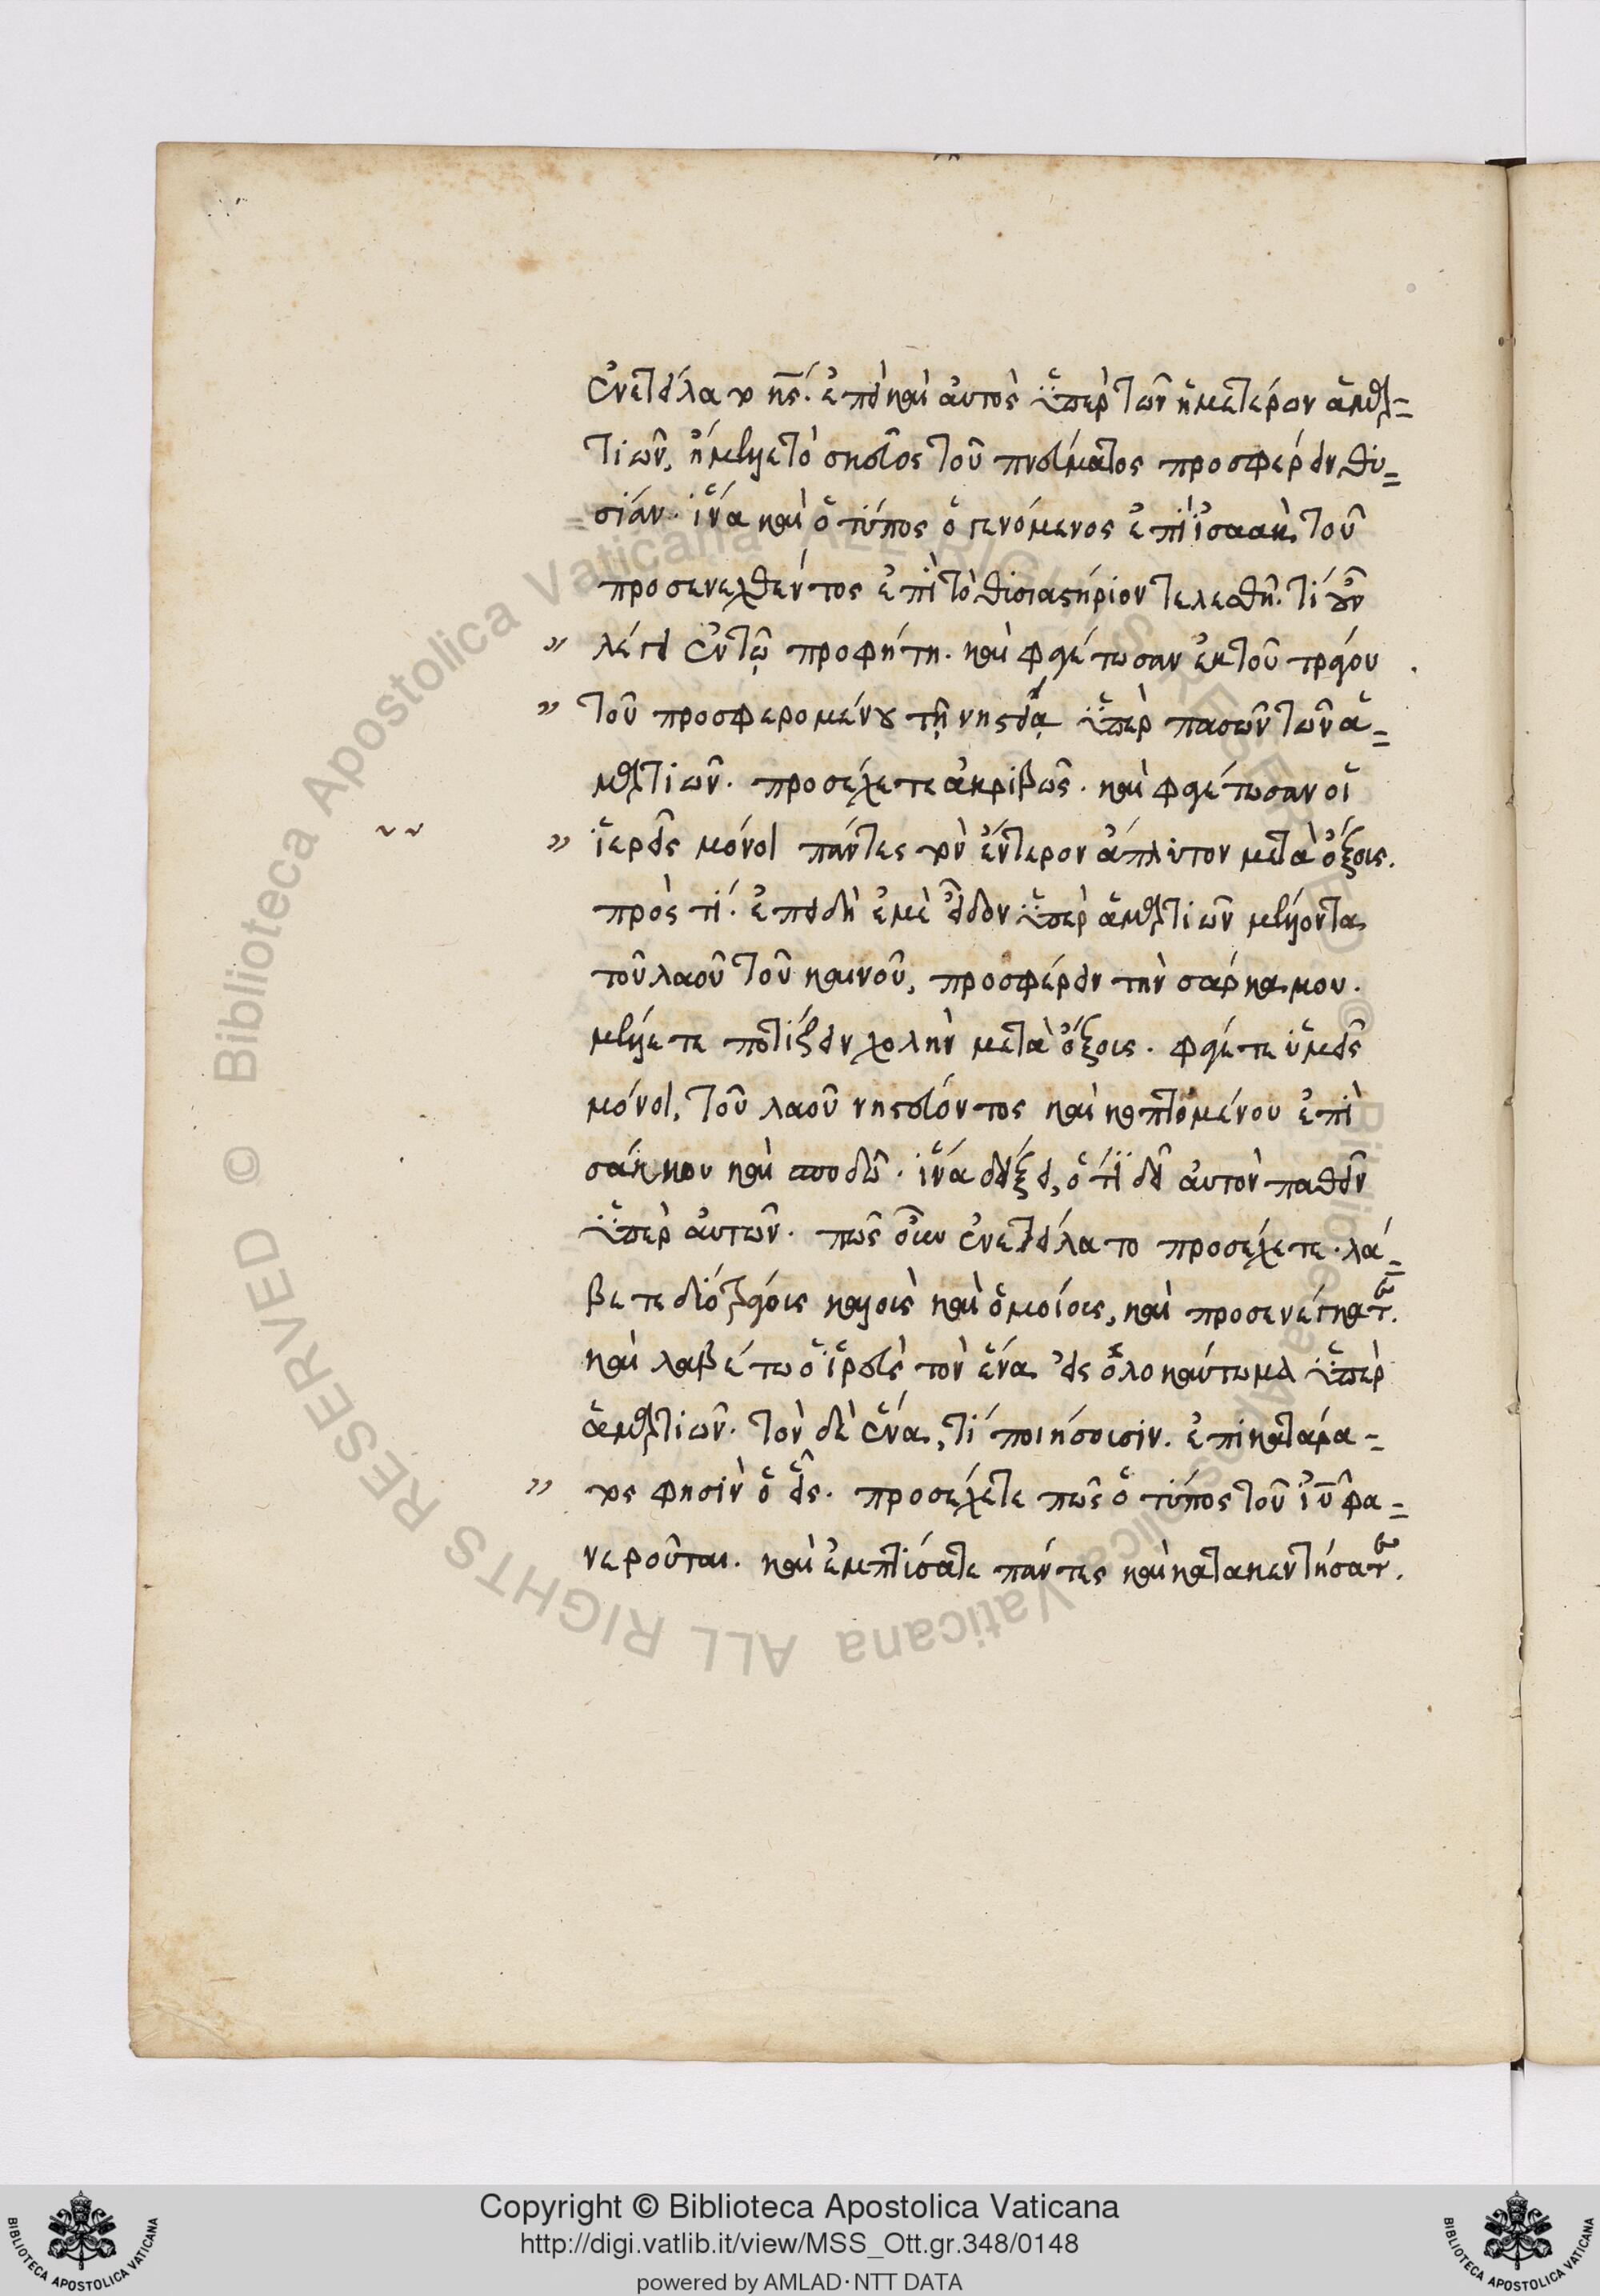 ἐνετείλατο κς̅. ἐπεὶ καὶ αὐτὸς ὑπὲρ τῶν ἡμετέρων ἁμαρ=
τιῶν, ἤμελλε τὸ σκεῦος τοῦ πνεύματος προσφέρειν θυ=
σίαν. ἵνα καὶ ὁ τύπος ὁ γενόμενος ἐπὶ ἰσαὰκ, τοῦ
προσενεχθέντος ἐπὶ τὸ θυσιαστήριον τελεσθῆ. τί οὖν
" λέγει ἐν τῷ προφήτη. καὶ φαγέτωσαν ἐκ τοῦ τράγου
" τοῦ προσφερομένου τῇ νηστείᾳ ὑπὲρ πασῶν τῶν ἁ=
μαρτιῶν. προσέχετε ἀκριβῶς. καὶ φαγέτωσαν οἱ
" ἱερεῖς μόνοι πάντες τὸ ἔντερον ἄπλυτον μετὰ ὄξους.
πρὸς τί. ἐπειδὴ ἐμὲ εἶδον ὑπὲρ ἁμαρτιῶν μέλλοντα
τοῦ λαοῦ τοῦ καινοῦ, προσφέρειν τὴν σάρκα μου.
μέλλετε ποτίζειν χολὴν μετὰ ὄξους. φάγετε ὑμεῖς
μόνοι, τοῦ λαοῦ νηστεύοντος καὶ κοπτομένου ἐπὶ
σάκκου καὶ σποδοῦ. ἵνα δείξει, ὅτι δεῖ αὐτὸν παθεῖν
ὑπὲρ αὐτῶν. πῶς οὖν ἐνετείλατο προσέχετε. λά=
βετε δύο τράγους καλοὺς καὶ ὁμοίους, καὶ προσενέγκατε.
καὶ λαβέτω ὁ ἱερεὺς τὸν ἕνα εἰς ὁλοκαύτωμα ὑπὲρ
ἁμαρτιῶν. τὸν δὲ ἕνα, τί ποιήσουσιν. ἐπικατάρα=
" τος φησὶν ὁ εἷς. προσέχετε πῶς ὁ τύπος τοῦ ἰυ̅ φα=
νεροῦται. καὶ ἐμπτύσατε πάντες καὶ κατακεντήσατε.
Copyright © Biblioteca Apostolica Vaticana
http://digi.vatlib.it/view/MSS_Ott.gr.348/0148
powered by AMLAD·NTT DATA
© Biblioteca Apostolica Vaticana ALL RIGHTS RESERVED
© Biblioteca Apostolica Vaticana ALL RIGHTS RESERVED
BIBLIOTECA APOSTOLICA VATICANA
BIBLIOTECA APOSTOLICA VATICANA